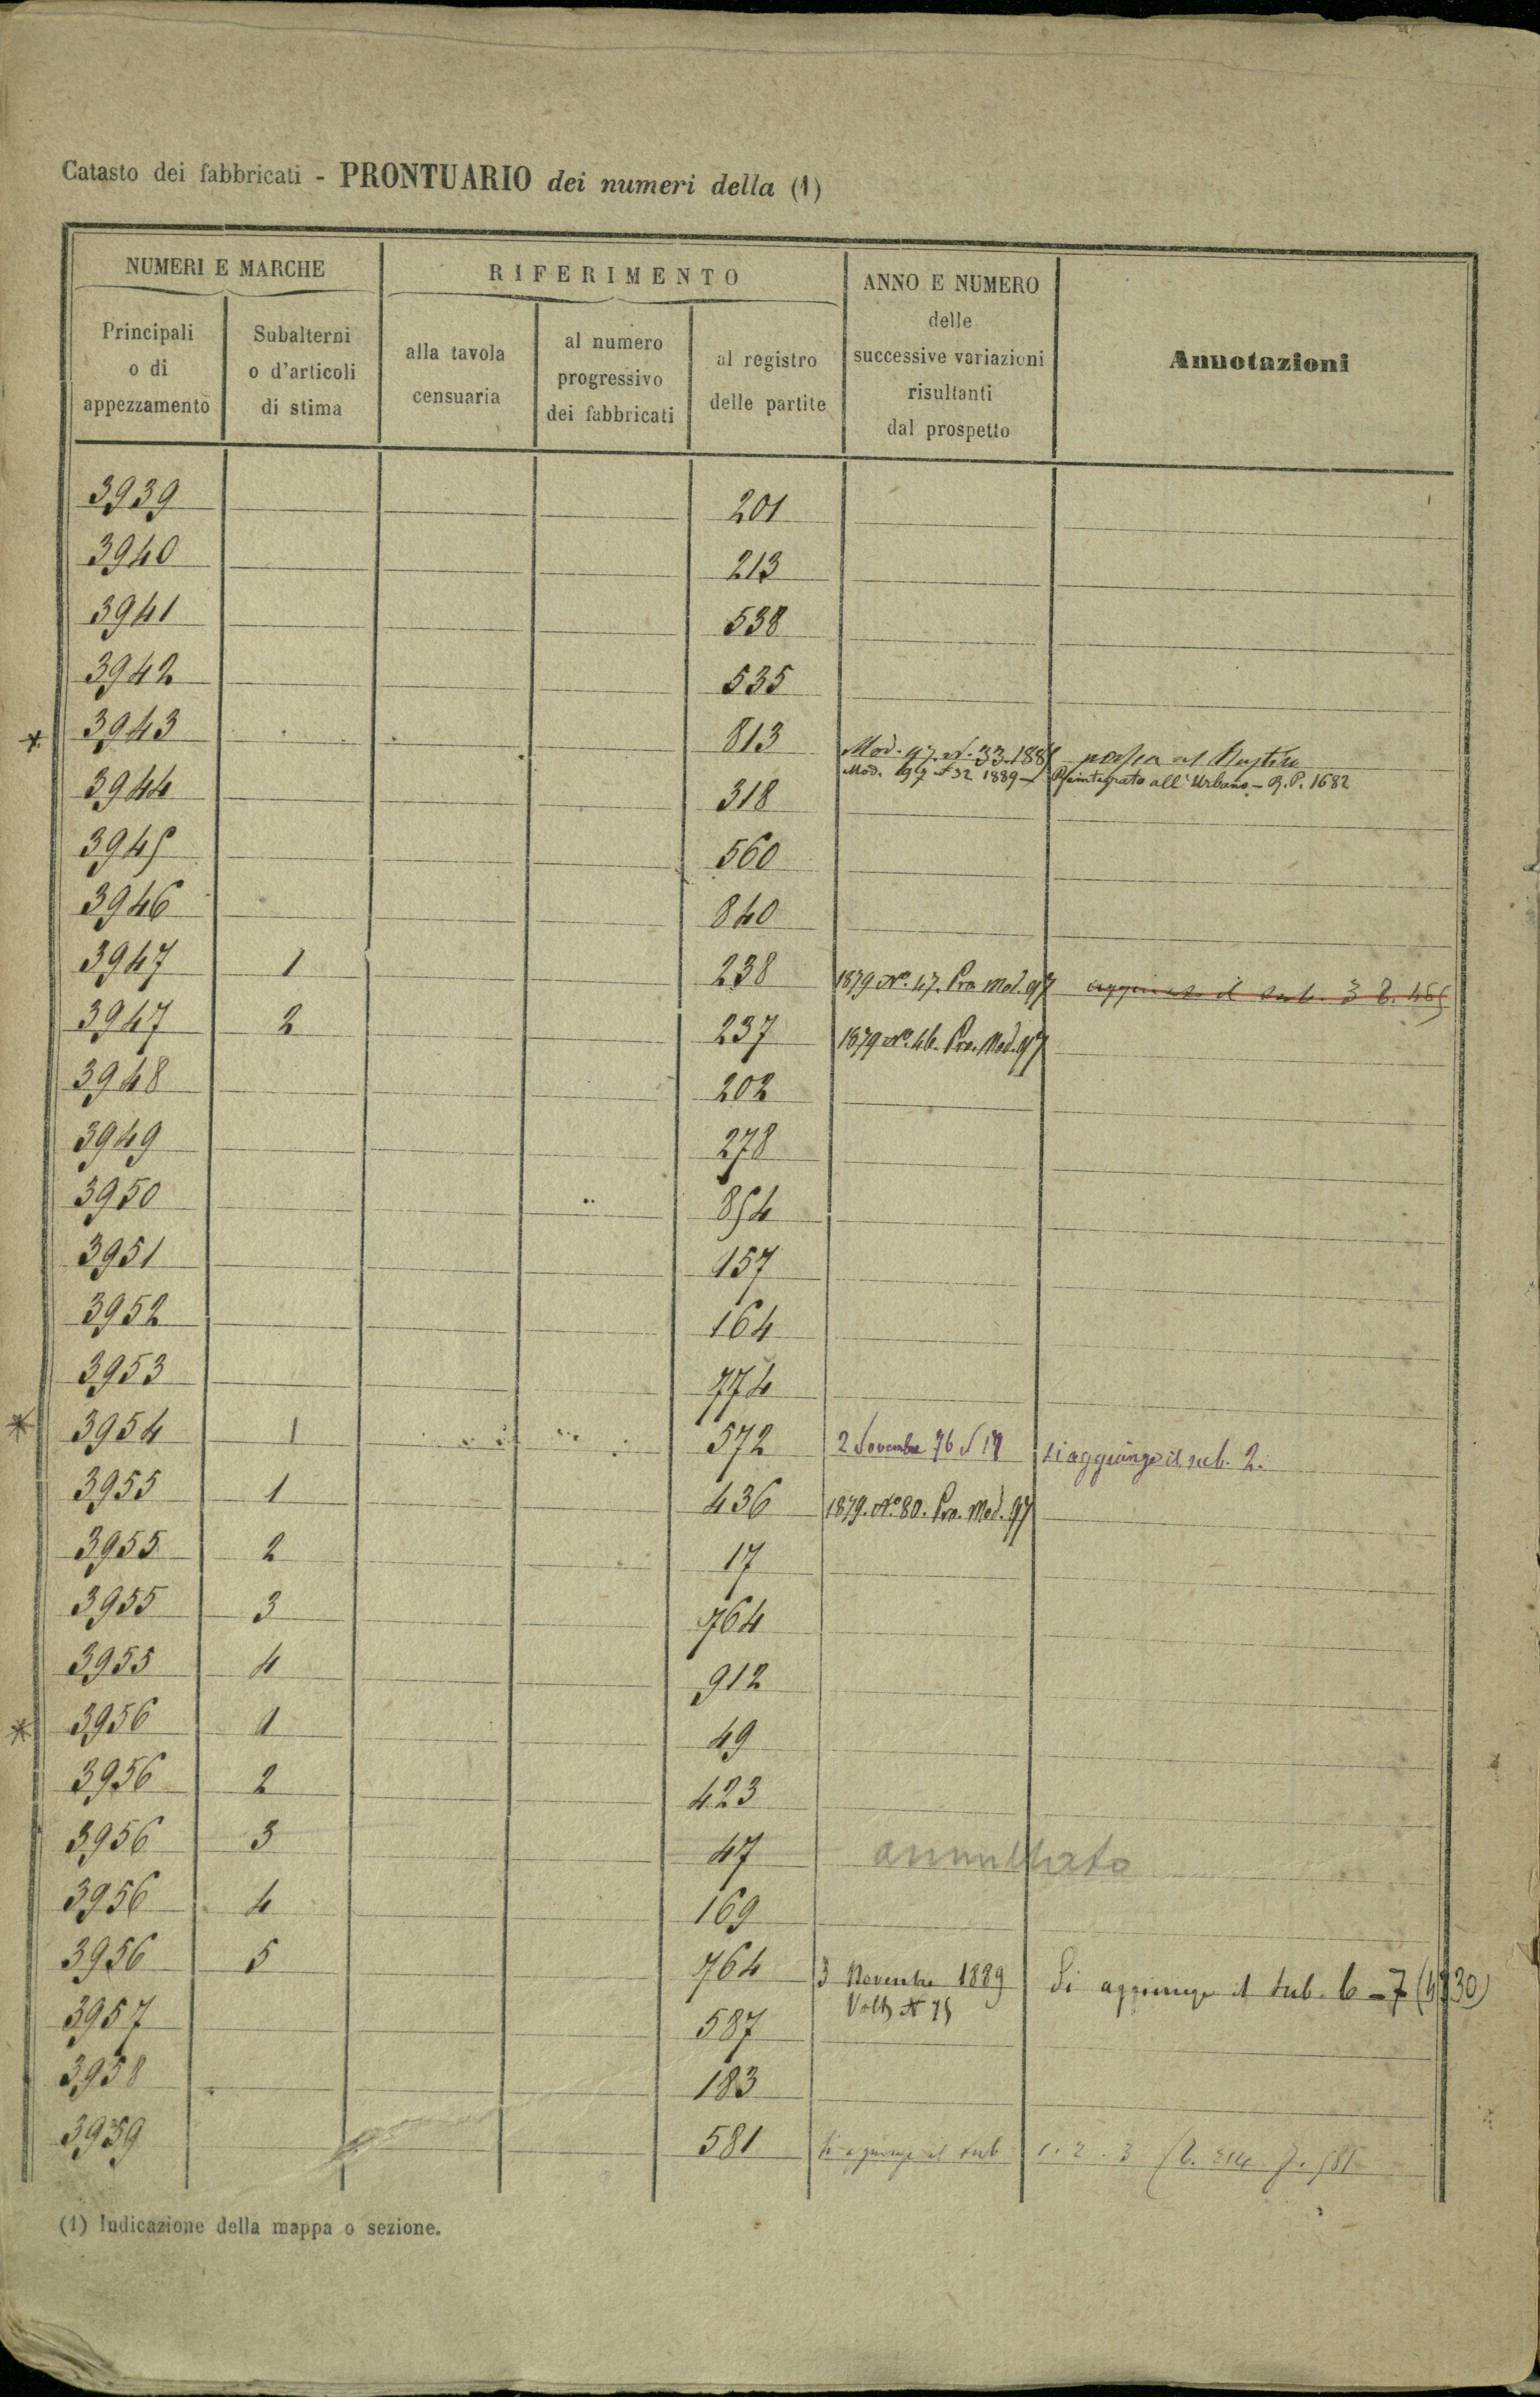 Catasto dei fabbricati - PRONTUARIO dei numeri della (1)
NUMERI E MARCHE
RIFERIMENTO
ANNO E NUMERO
delle
successive variazioni
risultanti
dal prospetto
Annotazioni
Principali
o di
appezzamento
Subalterni
o d'articoli
di stima
alla tavola
censuaria
al numero
progressivo
dei fabbricati
al registro
delle partite
3939 201
3940 213
3941 538
3942 535
* 3943 813 Mod. 97. N. 33. 188 passa al Rustico
Mod. 97 N 32 1889 Reintegrato all'Urbano - R.P. 1682
3944 318
3945 560
3946 840
3947 1 238 1879 No. 47. Pro. Mod. 97 aggiunto il sub. 3
3947 2 237 1879 No. 46. Pro. Mod. 97
3948 202
3949 278
3950 854
3951 157
3952 164
3953 774
* 3954 1 572 2 Novembre 76 N 17 si aggiunge il sub. 2.
3955 1 436 1879. No. 80. Pro. Mod. 97
3955 2 17
3955 3 764
3955 4 912
* 3956 1 49
3956 2 423
3956 3 47 annullato
3956 4 169
3956 5 764 3 Novembre 1889 Si aggiunge il sub. 6 - 7
3957 587
3958 183
3959 581 si aggiunge il sub 1. 2. 3
(1) Indicazione della mappa o sezione.